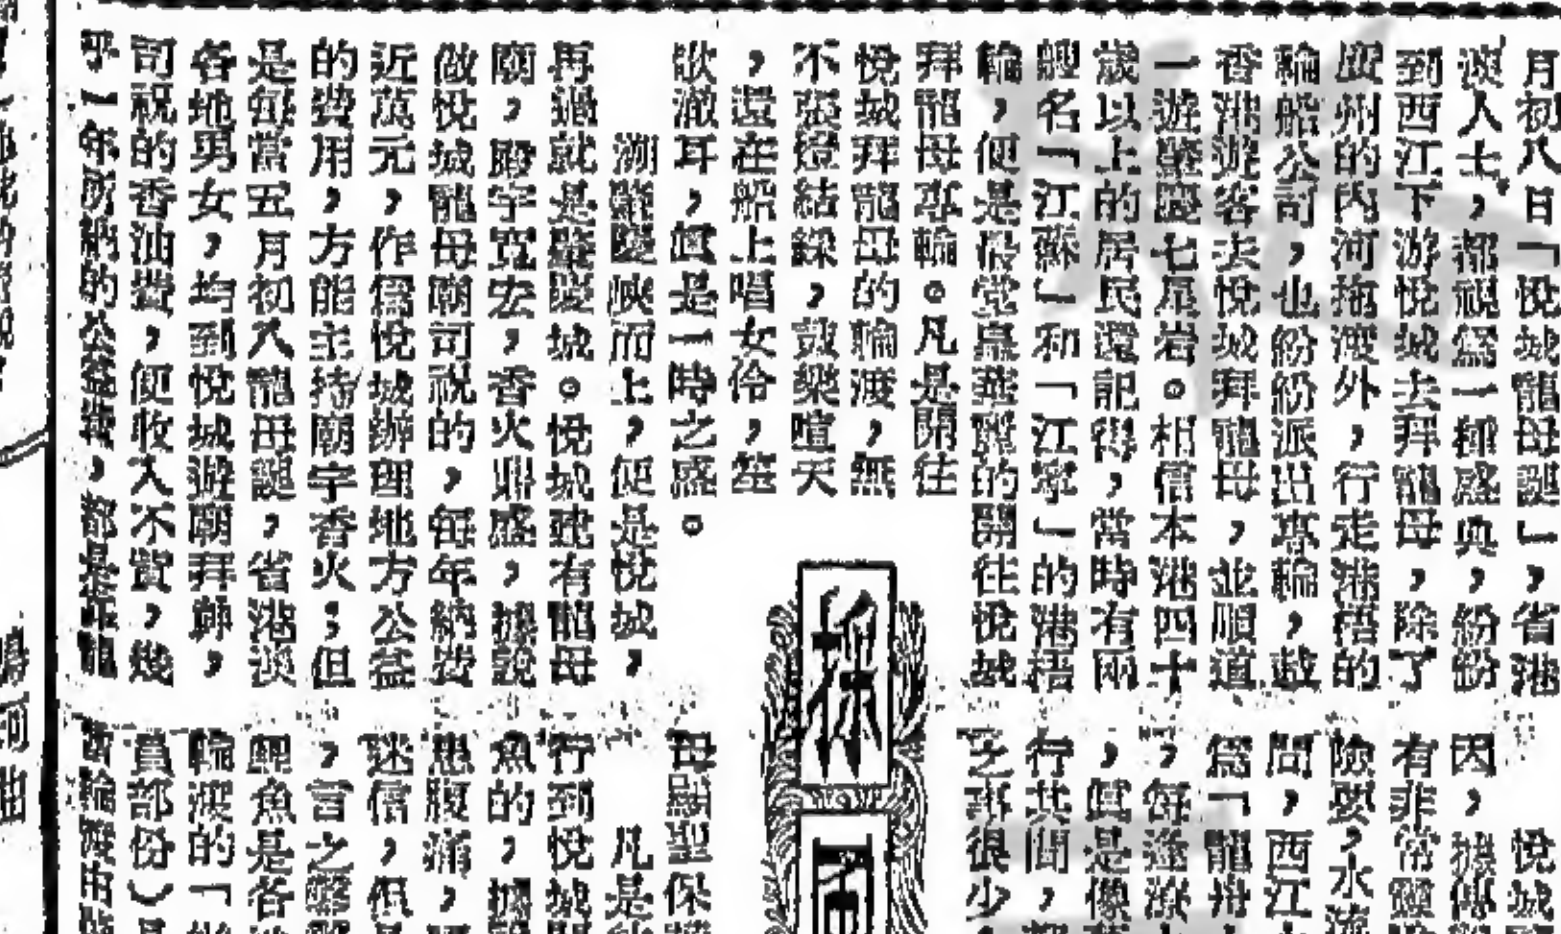 月初八日「悅城龍母誕」，省港
澳人士，都視爲一種盛典，紛紛
到西江下游悅城去拜龍母，除了
廣州的內河拖渡外，行走港梧的
輪船公司，也紛紛派出專輪，載
香港遊客去悅城拜龍母，並順道
一遊肇慶七星岩。相信本港四十
歲以上的居民還記得，當時有兩
艘名「江蘇」和「江寧」的港梧
輪，便是最堂皇華麗的開往悅城
拜龍母專輪。凡是開往
悅城拜龍母的輪渡，無
不張燈結綵，鼓樂喧天
，還在船上唱女伶，笙
歌澈耳，眞是一時之盛。
溯肇慶峽而上，便是悅城，
再過就是肇慶城。悅城建有龍母
廟，殿宇寬宏，香火鼎盛，據說
做悅城龍母廟司祝的，每年納費
近萬元，作爲悅城辦理地方公益
的費用，方能主持廟宇香火；但
是每當五月初八龍母誕，省港澳
各地男女，均到悅城遊廟拜神，
司祝的香油費，便收入不貲，幾
乎一年所納的公益費，都是在龍
採
悅城
因，據傳
有非常靈
險要，水流
問，西江
爲「龍舟
，每逢漲
，眞是像
行其間，
之事很少
母顯聖保
凡是
行到悅城
魚的，據說
患腹痛，
迷信，但
，言之鑿
鯉魚是各
輪渡的「
員部份）是
省輪渡由